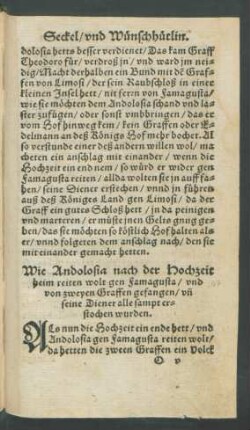 Seckel/ vnd Wünschhütlin.
dolosia hetts besser verdienet/ Das kam Graff
Theodoro für/ verdroß jn/ vnd ward jm nei-
dig/ Macht derhalben ein Bund mit dē Graf-
fen von Limosi/ der sein Raubschloß in einer
kleinen Insel hett/ nit fern von Famagusta/
wie sie möchten dem Andolosia schand vnd la-
ster zufügen/ oder sonst vmbbringen/ das er
vom Hof hinweg kem/ kein Graffen oder E-
delmann an deß Königs Hof mehr bochet. Al-
so verstunde einer deß andern willen wol/ ma-
cheten ein anschlag mit einander/ wenn die
Hochzeit ein end nem/ so würd er wider gen
Famagusta reiten/ allda wolten sie jn auff fa-
hen/ seine Diener erstechen/ vnnd jn führen
auß deß Königes Land gen Limosi/ da der
Graff ein gutes Schloß hett/ jn da peinigen
vnd marteren/ er müste jnen Gelts gnug ge-
ben/ das sie möchten so köstlich Hof halten als
er/ vnnd folgeten dem anschlag nach/ den sie
mit einander gemacht hetten.
Wie Andolosia nach der Hochzeit
heim reiten wolt gen Famagusta/ vnd
von zweyen Graffen gefangen/ vñ
seine Diener alle sampt er-
stochen wurden.
ALs nun die Hochzeit ein ende hett/ vnd
Andolosia gen Famagusta reiten wolt/
da hetten die zween Graffen ein Volck
O v